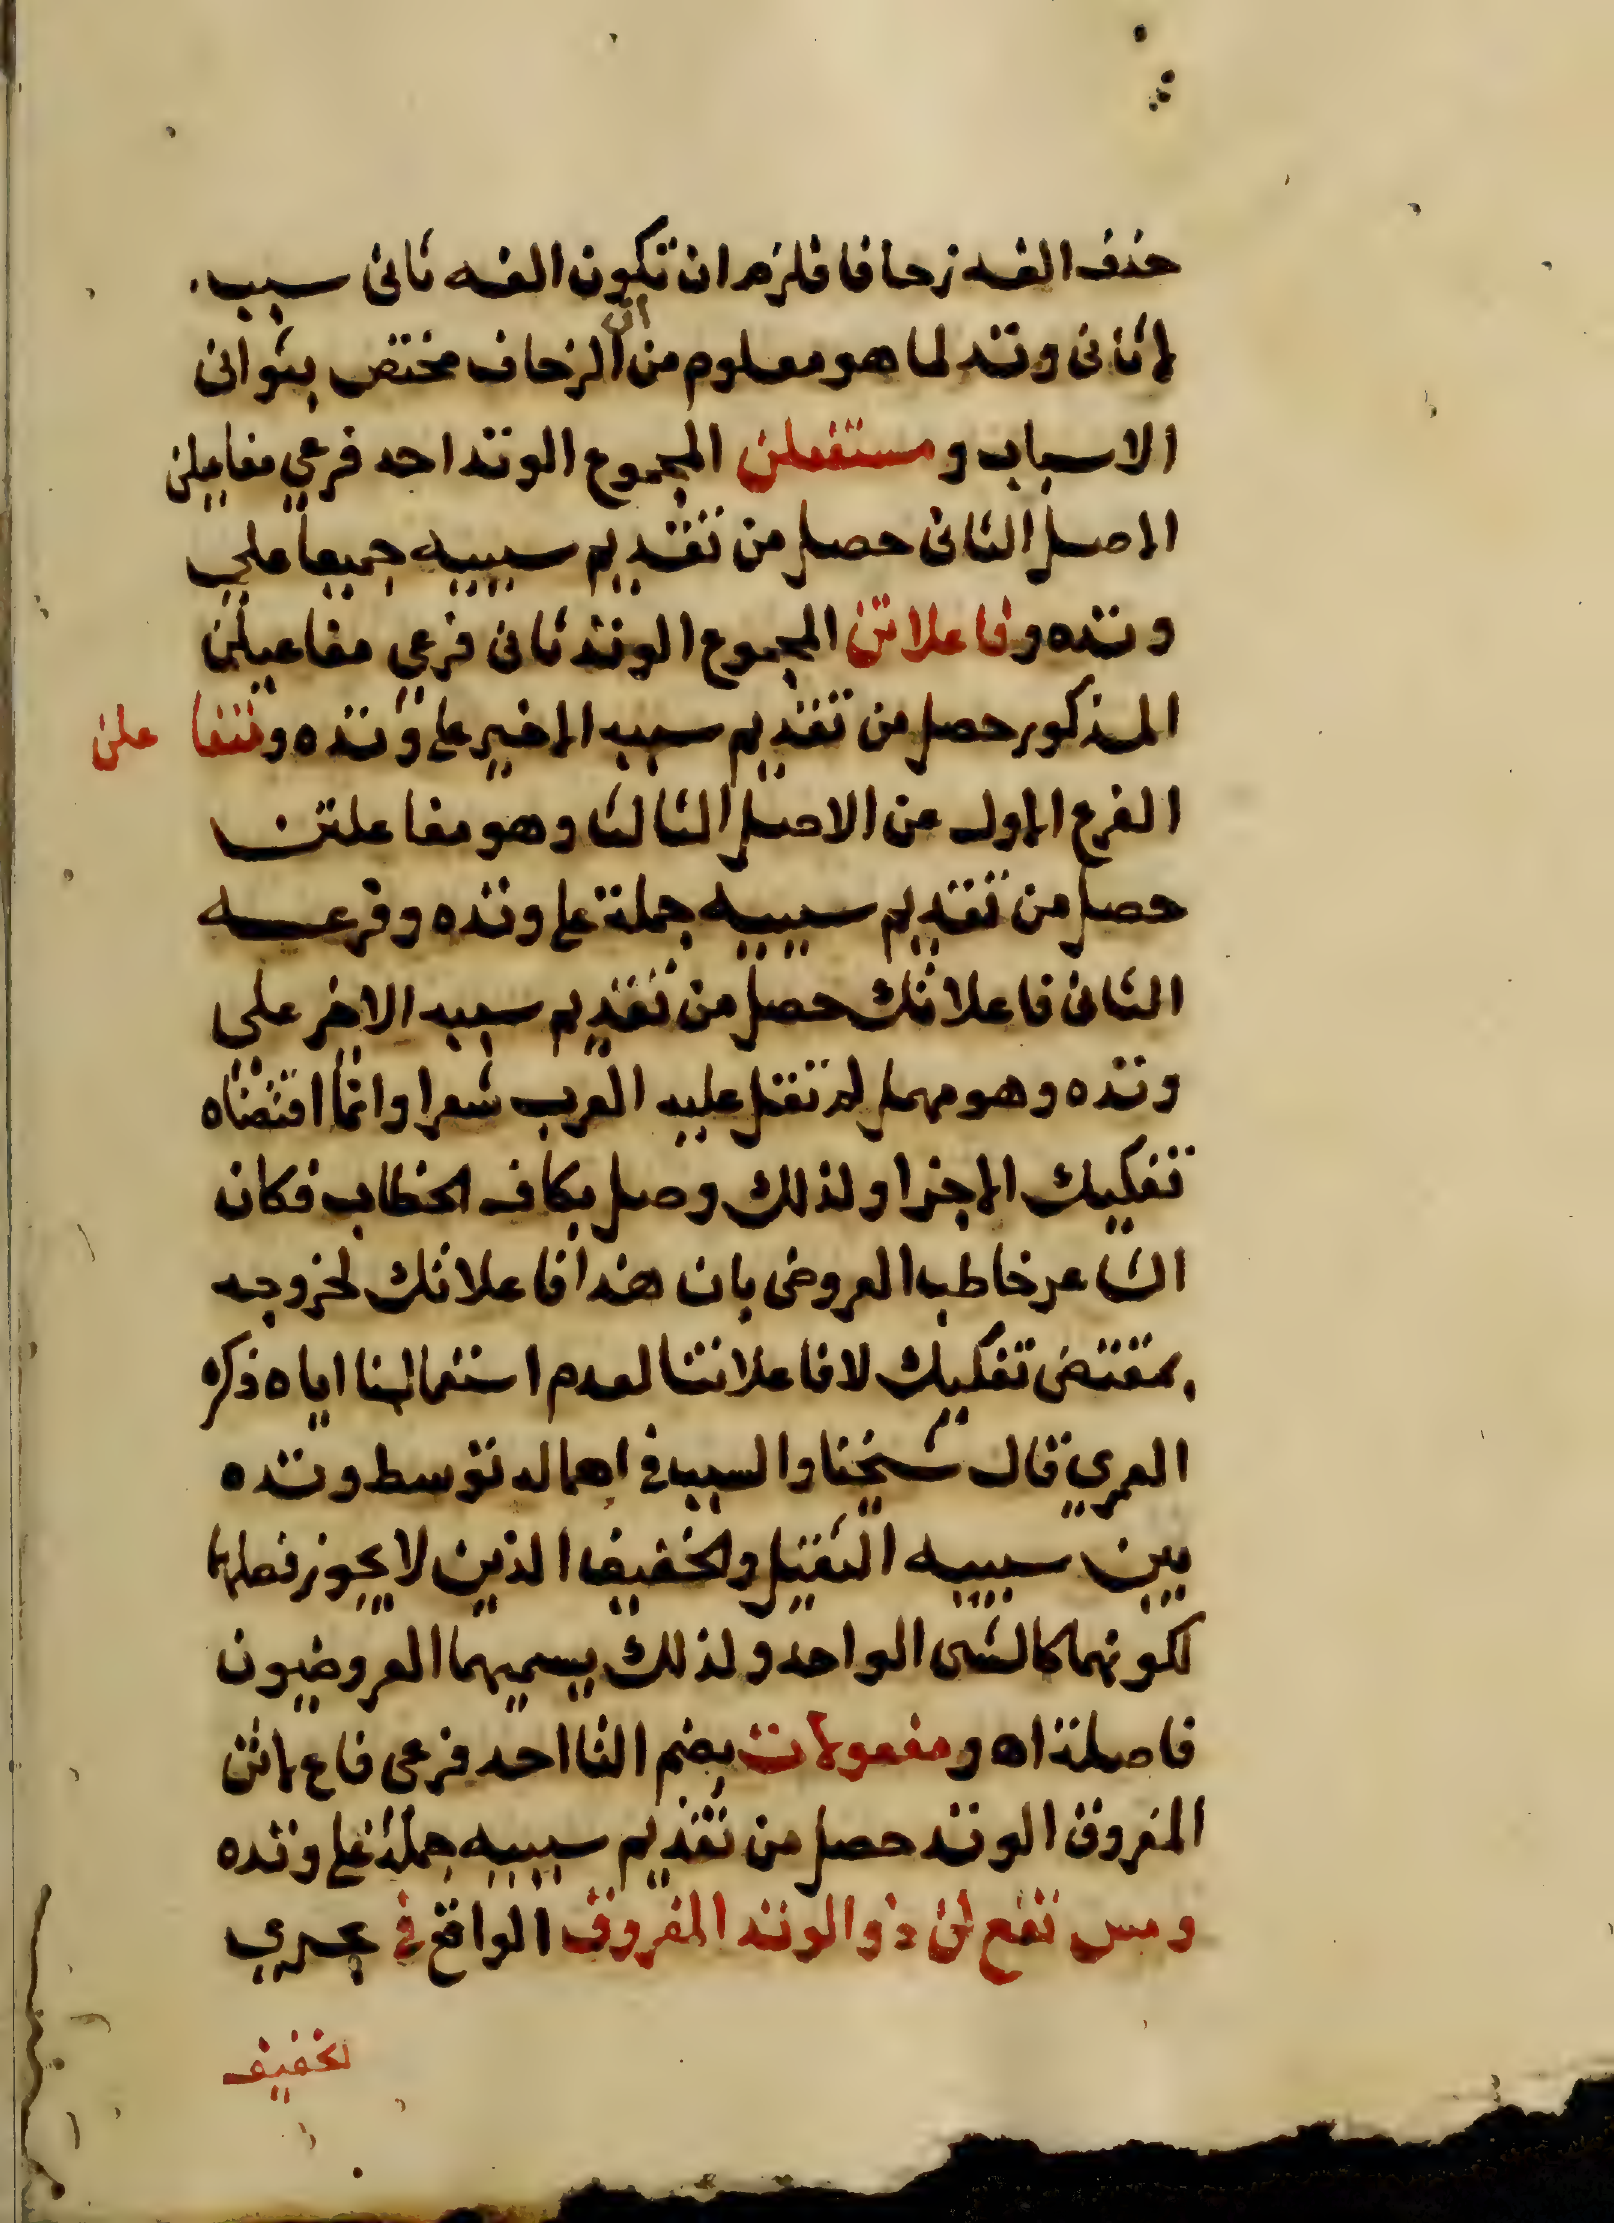 حذف الفه زحافا فلزم ان تكون الفه ثانى سبب
لا ثانى وتد لما هو معلوم من ان الزحاف مختص بثوانى
الاسباب ومستفعلن المجموع الوتد احد فرعي مفاعيلن
الاصل الثانى حصل من تقديم سببيه جميعا علي
وتده وفاعلاتن المجموع الوتد ثانى فرعي مفاعيلن
المذكور حصل من تقديم سببه الاخير على وتده ومتفا علن
الفرع الاول عن الاصل الثالث وهو مفاعلتن
حصل من تقديم سببيه جملة على وتده وفرعه
الثانى فاعلاتك حصل من تقديم سببه الاخير علي
وتده وهو مهمل لم تقل عليه العرب شعرا وانما اقتضاه
تفكيك الاجزا ولذلك وصل بكاف الخطاب فكان
الشاعر خاطب العروضى بان هذا فاعلاتك لخروجه
بمقتضى تفكيك لا فاعلاتنا لعدم استعمالنا اياه ذكره
العمري قال شيخنا والسبب في اهماله توسط وتده
بين سببيه الثقيل والخفيف الذين لا يجوز فصلهما
لكونهما كالشى الواحد ولذلك يسميهما العروضيون
فاصلة اه ومفعولات بضم التا احد فرعى فاع لاتن
المفروق الوتد حصل من تقديم سببيه جملة على وتده
ومس تفع لن ذو الوتد المفروق الواقع في بحري
لخفيف